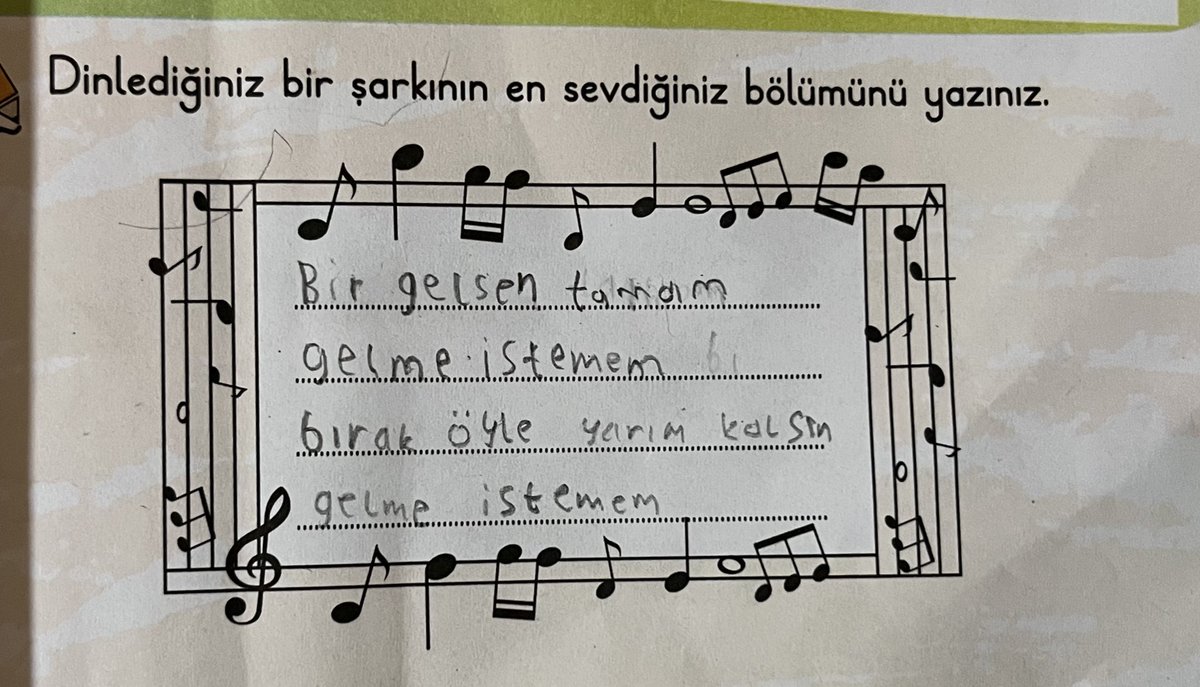 Dinlediğiniz bir şarkının en sevdiğiniz bölümünü yazınız.
Bir gelsen tamam
gelme istemem bı
bırak öyle yarım kalsın
gelme istemem